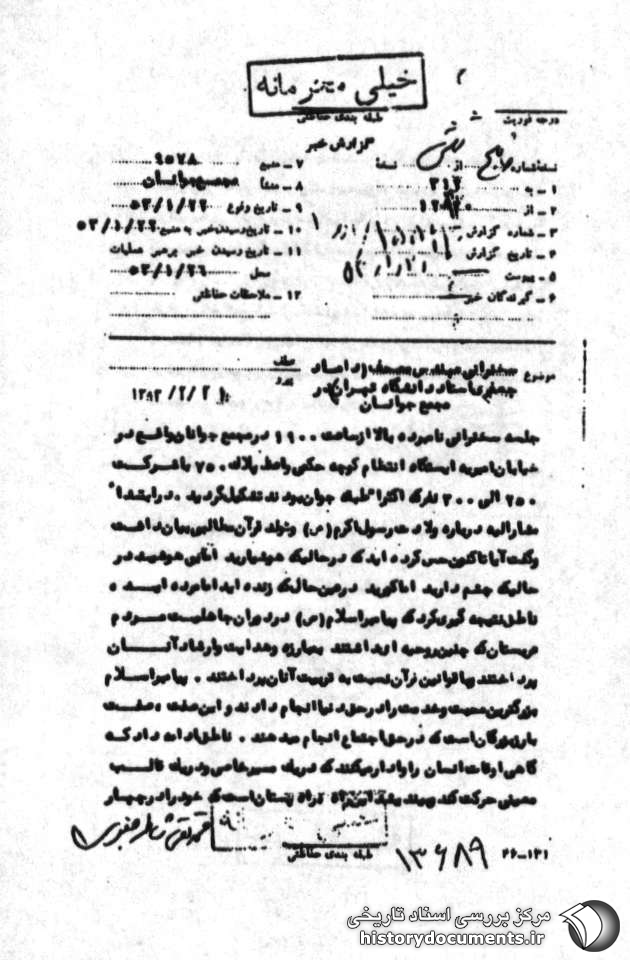 خیلی محرمانه
طبقه بندی حفاظتی
درجه فوریت
گزارش خبر
نسخه شماره پنج از شش نسخه
۱ – به ۳۱۲
۲ – از
۳ – شماره گزارش
۴ – تاریخ گزارش
۵ – پیوست
۶ – گیرندگان خبر
۷ – منبع ۹۵۷۸
۸ – منشأ مجمع جوانسان
۹ – تاریخ وقوع ۵۳/۱/۲۲
۱۰ – تاریخ رسیدن خبر به منبع ۵۳/۱/۲۲
۱۱ – تاریخ رسیدن خبر برهبر عملیات
محل ۵۳/۱/۲۶
۱۲ – ملاحظات حفاظتی
موضوع سخنرانی مهندس مصحف (داماد
جعفری استاد دانشگاه تهران) در
مجمع جوانسان
جلسه سخنرانی نامبرده بالا از ساعت ۱۹۰۰ در مجمع جوانان واقع در
خیابان امیریه ایستگاه انتظام کوچه حکمی واعظ پلاک ۷۵۰ با شرکت
۲۵۰ الی ۳۰۰ نفر که اکثرا طبقه جوان بودند تشکیل گردید . در ابتدا
مشارالیه درباره ولادت رسول اکرم (ص) و تولد قرآن مطالبی بیان داشت
وگفت آیا تاکنون حس کرده اید که در حالیکه هوشیارید اما بی هوشید در
حالیکه چشم دارید اما کورید در عین حالیکه زنده اید اما مرده ایـد .
ناطق نتیجه گیری کرد که پیامبر اسلام (ص) در دوران جاهلیت مـردم
عربستان که چنین روحیه ای داشتند بمبارزه و هدایت و ارشاد آنـان
پرداختند و با قوانین قرآن نسبت به تربیت آنان پرداختند . پیامبر اسـلام
بزرگترین محبت و خدمت را در حق دنیا انجام دادند و این صفت ، صفت
بارز بزرگان است که در حق اجتماع انجام میدهند . ناطق ادامه داد کـه
گاهی اوقات انسان را وادار میکنند که در یک مسیر خاص و در یک قالـب
معینی حرکت کند است که خود را در چهار
طبقه بندی حفاظتی
۱۳۶۸۹
۲۶–۱۳۱
مرکز بررسی اسناد تاریخی
historydocuments.ir